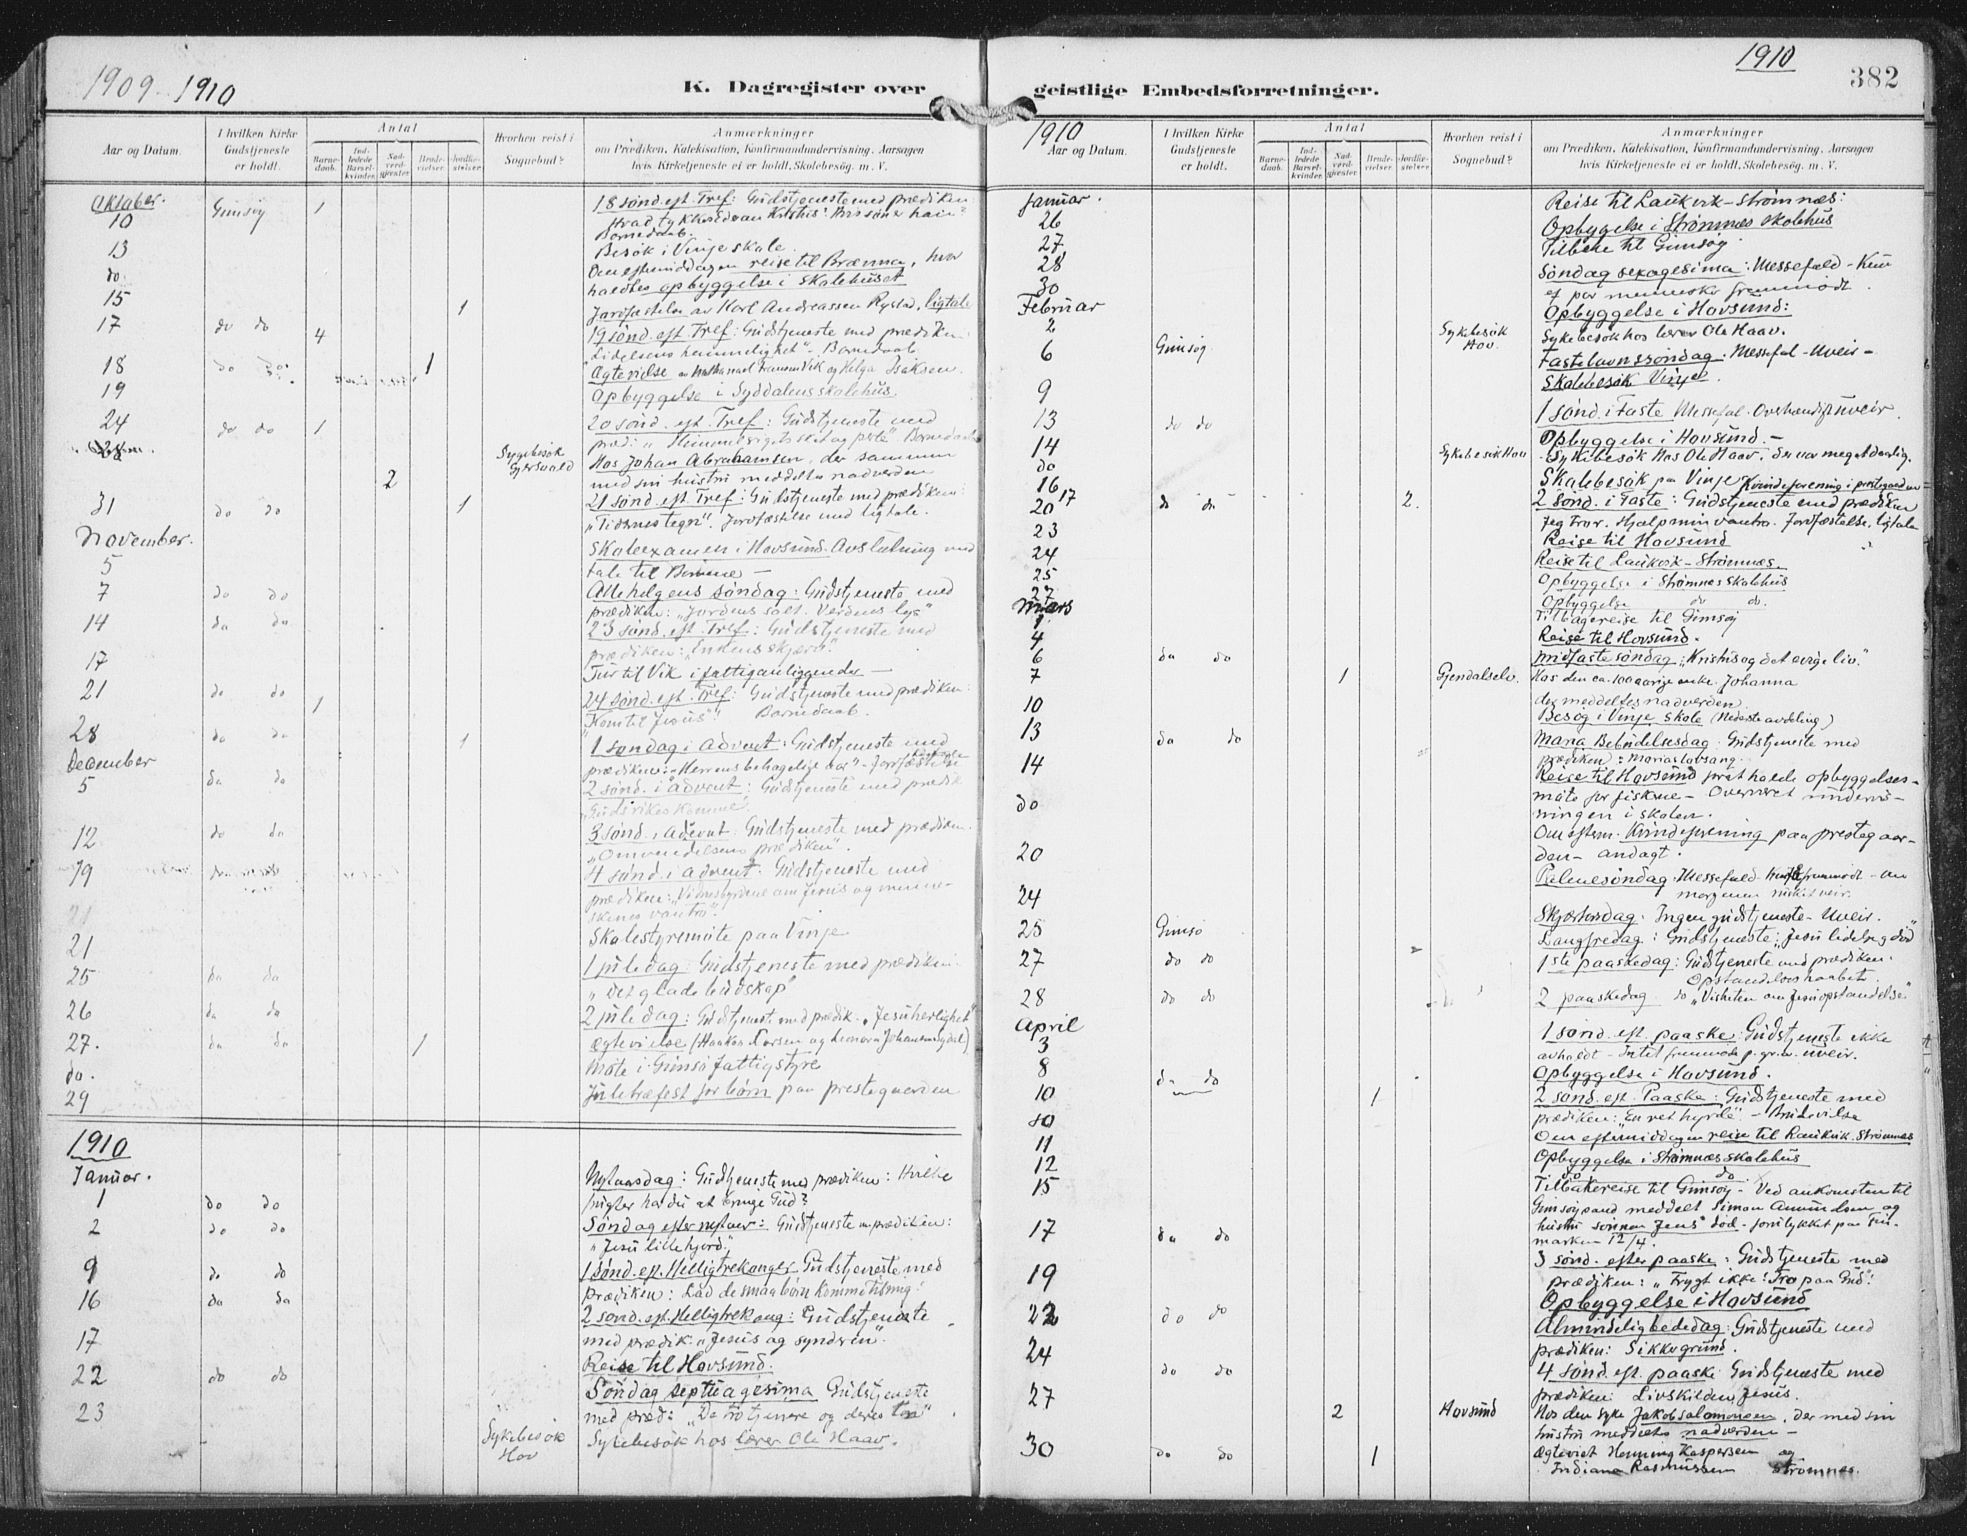 1909-1910
K. Dagregister over
Aar og Datum.
I hvilken Kirke Gudstjeneste er holdt.
Antal
Barnedaab.
Indledede Barselkvinder.
Nadverdgjester
Brudevielser
Jordfæstelser
Hvorhen reist i Sognebud?
Anmærkninger
om Prædiken, Katekisation, Konfirmandundervisning. Aarsagen
hvis Kirketjeneste ei er holdt. Skolebesøg. m. V.
Oktober.
10 Gimsøy 1 18 sønd. eft. Tref: Gudstjeneste med prædiken
Barnedaab.
13 Besøk i Vinje skole.
do. Om eftermiddagen reise til Brænna, hvor
holdtes opbyggelse i Skolehuset
15 1 Jordfæstelse av Karl Andreassen Rystad, ligtale
17 do do 4 19 sønd. eft. Tref: Gudstjeneste med prædiken
Lidelsens hemmelighet" - Barnedaab.
18 do do 1 Ægtevielse av Nathanael Hansen Vik og Helga Isaksen.
19 Opbyggelse i Syddalens skolehus.
24 do do 1 20 sønd. eft. Tref: Gudstjeneste med
præd: "Himmerigets skat og perle". Barnedaab
Sygebesøk
Hos Johan Abrahamsen, der sammen
2 med sin hustru meddeltes nadverden
31 do do 1 21 sønd. eft. Tref: Gudstjeneste med prædiken:
"Tidernes tegn". Jordfæstelse med ligtale.
November.
5 Skoleexamen i Hovsund. Avslutning med
tale til Børnene -
7 do do Allehelgens søndag: Gudstjeneste med
prædiken: "Jordens salt. Verdens lys"
14 do do 23 sønd. eft. Tref: Gudstjeneste med
prædiken: "Enkens skjærv".
17 Tur til Vik i fattiganliggender -
21 do do 1 24 sønd. eft. Tref: Gudstjeneste med prædiken:
"Kom til Jesus"! Barnedaab.
28 do do 1 1 søndag i Advent: Gudstjeneste med
prædiken: "Herrens behagelige aar" - Jordfæstelse
December
5 do do 2 sønd. i Advent: Gudstjeneste med prædik
"Gudsrikes komme".
12 do do 3 sønd. i Advent: Gudstjeneste med prædiken.
"Omvendelsens prædiken".
19 4 sønd. i Advent: Gudstjeneste med
prædiken: "Vidnesbyrdene om Jesus og menne-
skenes vantro".
21
21 Skolestyremøte paa Vinje
25 do do 1 juledag: Gudstjeneste med prædiken.
"Det glade budskap"
26 do do 2 juledag: Gudstjeneste med prædik. "Jesu herlighet"
27. do do 1 Ægtevielse (Haakon Larsen og Leonora Johansen
do. Møte i Gimsø fattigstyre
29 Juletræfest for børn paa prestegaarden
1910
Januar.
1 do do Nytaarsdag: Gudtjeneste med prædiken: Hvilke
frugter har du at bringe Gud?
2 do do Søndag efter nytaar: Gudstjeneste m prædiken:
"Jesu lille hjord".
9 do do 1 sønd. ef. Helligtrekonger Gudstjeneste med
prædiken: Lad de smaa børn komme til mig!
16 do do 2 sønd. eft. Helligtrekong: Gudstjeneste
med prædik. "Jesus og synderen".
17 Reise til Hovsund.
22 do do Søndag septuagesima Gudstjeneste
med præd: "De tro tjenere og deres løn"
23 Sykebesøk Hov Sykebesøk hos lærer Ole Haav.
1910
382
geistlige Embedsforretninger.
1910
Aar og Datum.
I hvilken Kirke Gudstjeneste er holdt.
Antal
Barnedaab.
Indledede Barselkvinder.
Nadverdgjester
Brudevielser
Jordfæstelser
Hvorhen reist i Sognebud?
Anmærkninger
om Prædiken, Katekisation, Konfirmandundervisning. Aarsagen
hvis Kirketjeneste ei er holdt. Skolebesøg. m. V.
Januar.
26 Reise til Laukvik-Strømnæs:
Opbyggelse i Strømnæs skolehus
27 Tilbake til Gimsøy.
28
30 Søndag sexagesima: Messefald - Kun
et par mennesker fremmødt.
Februar
2 Opbyggelse i Hovsund:
Sykebesøk Hov. Sykebesøk hos lærer Ole Haav.
6 Gimsøy. Fastelavnssøndag. Messefal - Uveir -
9 Skolebesøk Vinje.
13 do do 1 sønd. i Faste Messefal. Overhændig uveir
14 Opbyggelse i Hovsund. -
do Sykebesøk Hov Sykebesøk hos Ole Haav, der var meget daarlig.
16 Skolebesøk paa Vinje
17 Kvindeforening i prestegaarden
20 do do 2. 2 sønd. i Faste: Gudstjeneste med prædiken
Jeg tror. Hjælp min vantro. Jordfæstelse, ligtale
23 Reise til Hovsund
24 Reise til Laukvik-Strømnæs.
25 Opbyggelse i Strømnæs skolehus
27 Opbyggelse do do.
Mars
1 Tilbagereise til Gimsøy
4 Reise til Hovsund.
6 do do Midfastesøndag: "Kristus og det evige liv."
7 1 Gjendalselv. Hos den ca. 100 aarige enke Johanna
der meddeltes nadverden.
10 Besøg i Vinje skole (Nederste avdeling)
13 do do Maria Bebudelsesdag: Gudstjeneste med
prædiken: Marias lovsang.
14 Reise til Hovsund for at holde opbyggelses-
møte for fiskerne - Overværet undervis-
ningen i skolen.
do Om efterm. Kvindeforening paa prestegaar-
den - andagt.
20 Palmesøndag. Messefald - om
morgenen uveir.
24 Skjærtorsdag. Ingen gudstjeneste - Uveir.
25 Gimsø Langfredag: Gudstjeneste: "Jesu lidelse og død"
27 do do 1ste paaskedag: Gudstjeneste med prædiken:
Opstandelseshaabet.
28 do do 2 paaskedag do "Visheten om Jesu opstandelse"
April
3 1 sønd. eft. paaske: Gudstjeneste ikke
avholdt - Intet fremmøde p. gr. av uveir.
8 Opbyggelse i Hovsund.
10 do do 1 2 sønd. eft. Paaske: Gudstjeneste med
prædiken: "En ret hyrde" - Brudevielse
10 Om eftermiddagen reise til Laukvik. Strømnæs
11 Opbyggelse i Strømnæs skolehus
12 do do
15 Tilbakereise til Gimsøy - Ved ankomsten til
Gimsøysand meddelt Simon Amundsen og
hustru sønnen Jens' død - forulykket paa Fin-
marken 12/4.
17 do do 3 sønd. efter paaske: Gudstjeneste med
prædiken: "Frygt ikke! Tro paa Gud"!
19 Opbyggelse i Hovsund
22 do do Almindelig bededag: Gudstjeneste med
prædiken: Sikker grund.
24 do do 4 sønd. eft. paaske: Gudstjeneste med
prædiken: Livskilden, Jesus.
27 2 Hovsund Hos den syke Jakob Salomonsen, der med sin
hustru meddeltes nadverden -
30 do do 1 Ægteviet Henning Kaspersen og
Indiana Rasmussen Strømnes.